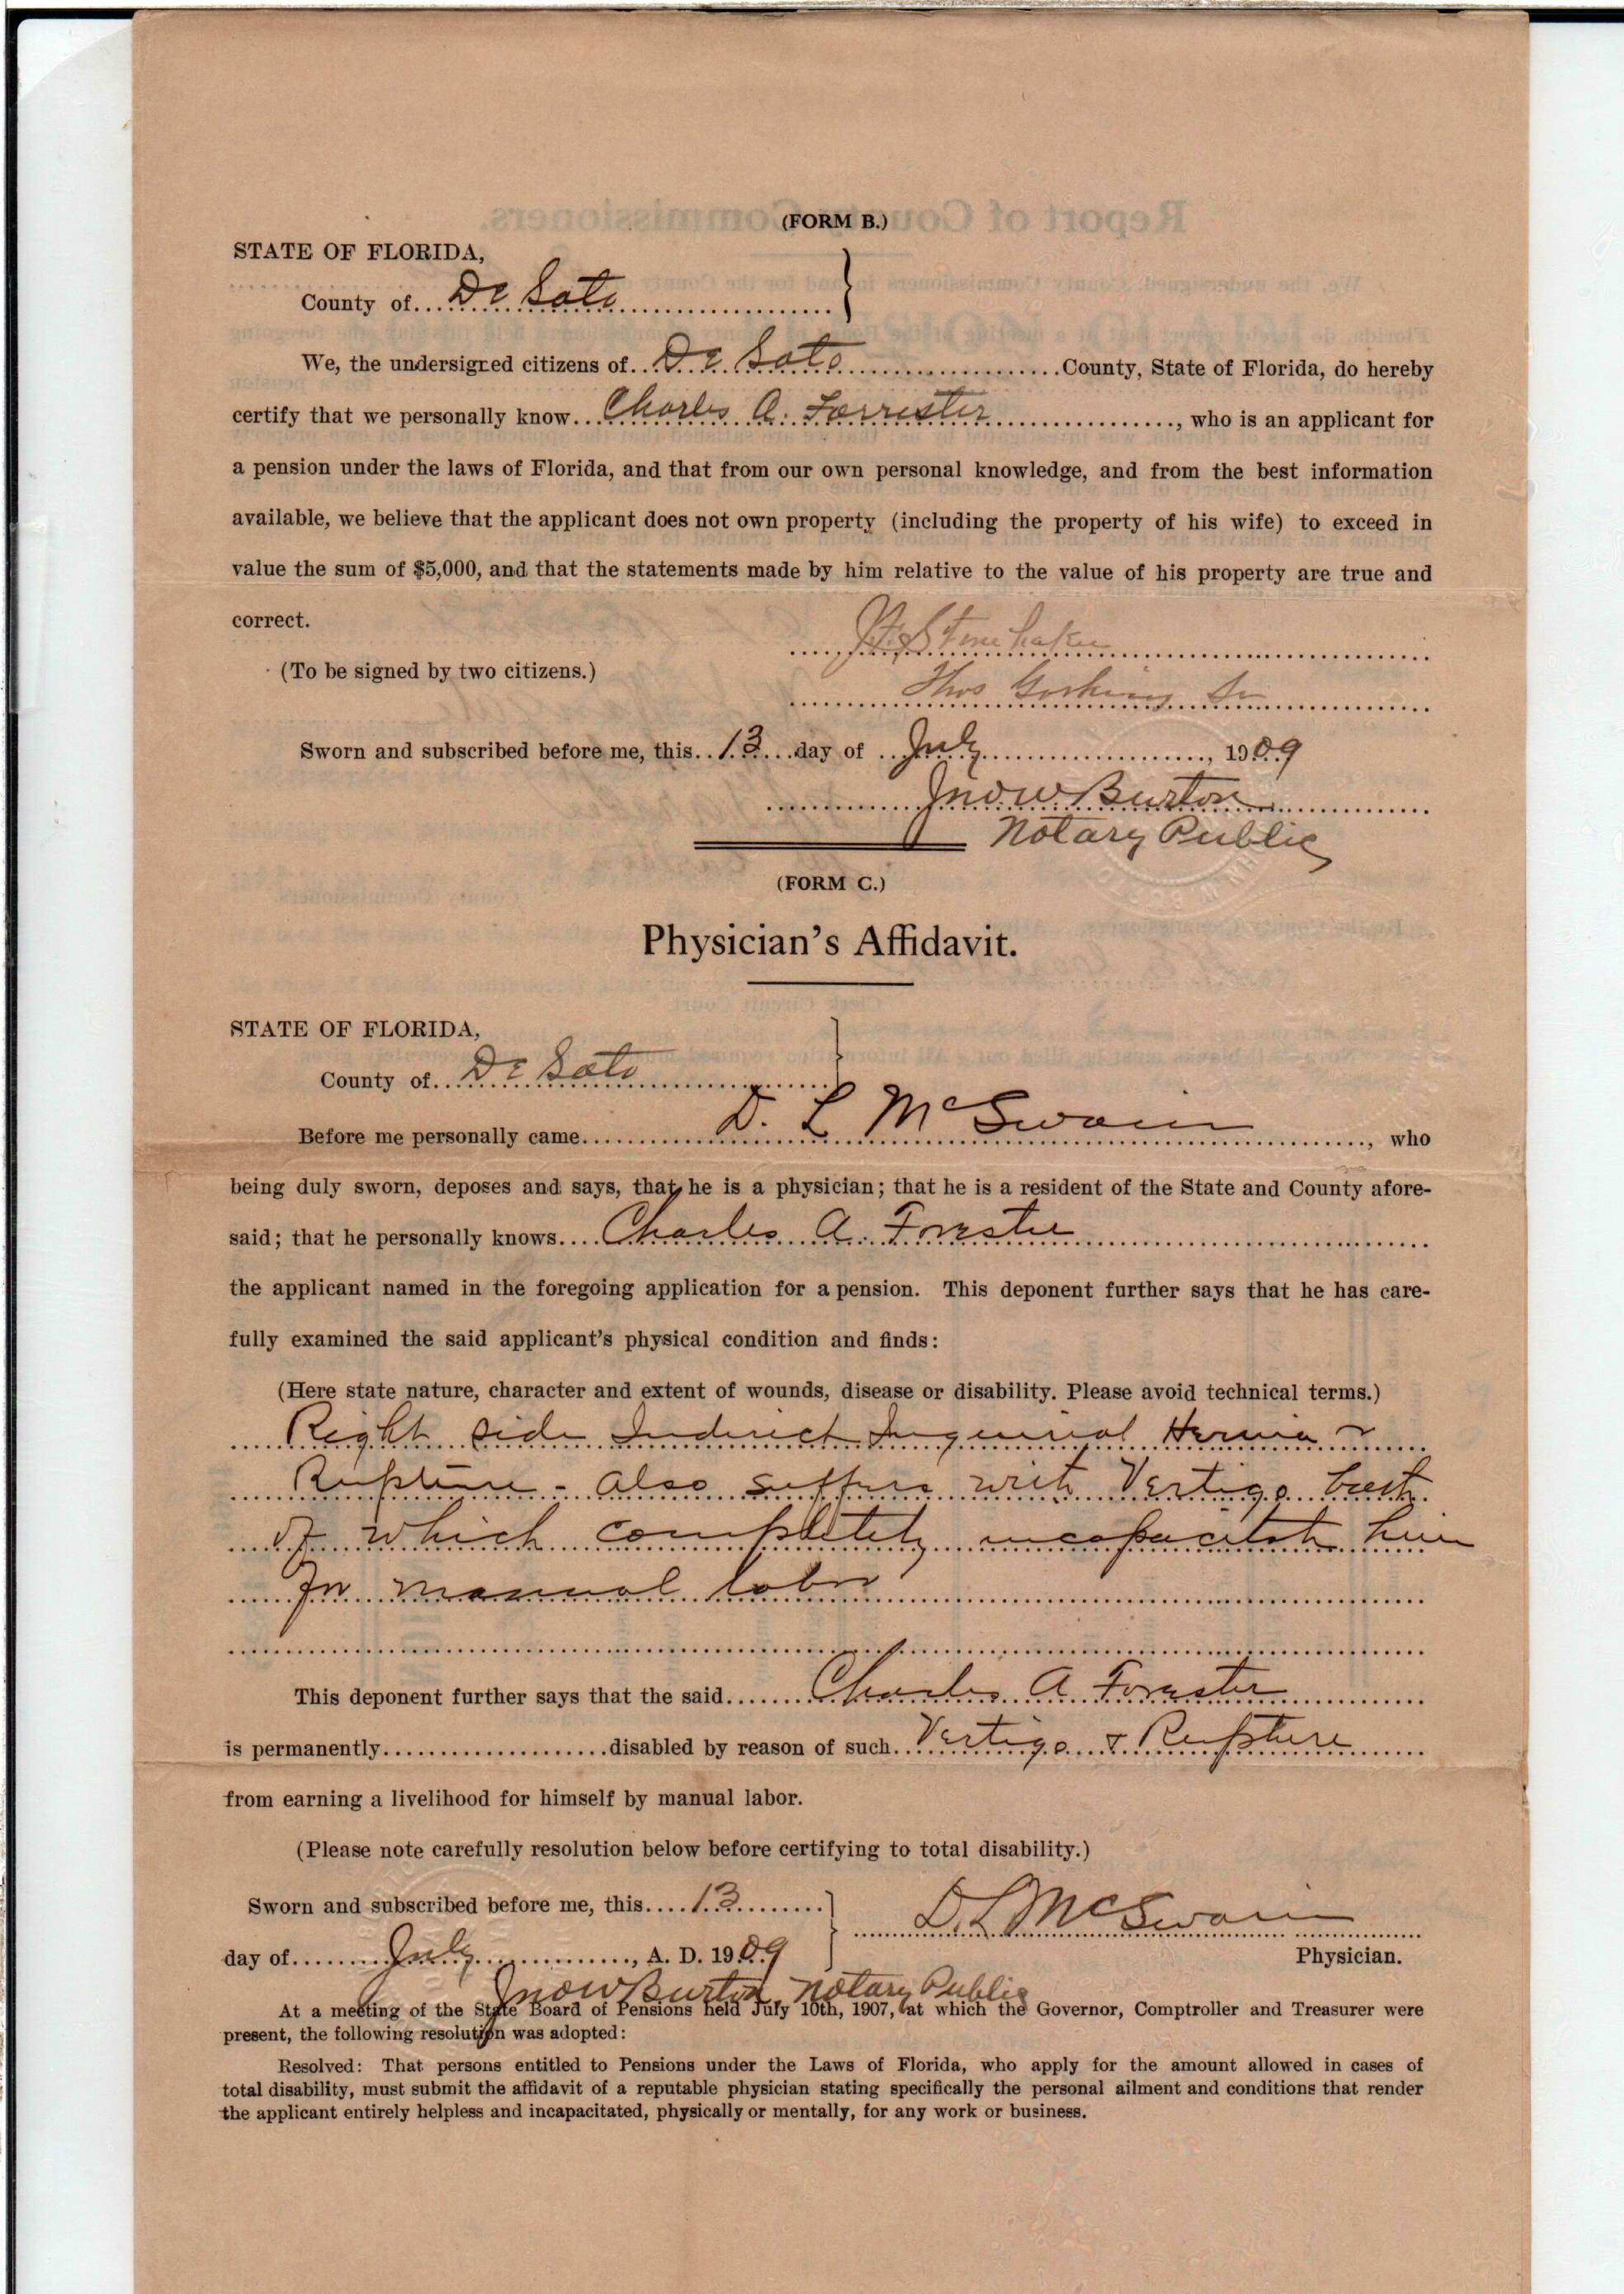 (FORM B.)
STATE OF FLORIDA,
County of De Soto
We, the undersigned citizens of De Soto County, State of Florida, do hereby
certify that we personally know Charles A. Forrester, who is an applicant for
a pension under the laws of Florida, and that from our own personal knowledge, and from the best information
available, we believe that the applicant does not own property (including the property of his wife) to exceed in
value the sum of $5,000, and that the statements made by him relative to the value of his property are true and
correct.
(To be signed by two citizens.)
Thos Goskins Sr
Sworn and subscribed before me, this 13 day of July, 1909
Jno W Burton
Notary Public
(FORM C.)
Physician's Affidavit.
STATE OF FLORIDA,
County of De Soto
Before me personally came D. L McSwain, who
being duly sworn, deposes and says, that he is a physician; that he is a resident of the State and County afore-
said; that he personally knows Charles A. Forester
the applicant named in the foregoing application for a pension. This deponent further says that he has care-
fully examined the said applicant's physical condition and finds:
(Here state nature, character and extent of wounds, disease or disability. Please avoid technical terms.)
Right side Indirect Inguinal Hernia
Rupture - also suffers with Vertigo both
of which completely incapacitate him
for manual labor
This deponent further says that the said Charles A Forester
is permanently disabled by reason of such Vertigo & Rupture
from earning a livelihood for himself by manual labor.
(Please note carefully resolution below before certifying to total disability.)
Sworn and subscribed before me, this 13
D. L McSwain
day of July, A. D. 1909
Physician.
Jno W Burton Notary Public
At a meeting of the State Board of Pensions held July 10th, 1907, at which the Governor, Comptroller and Treasurer were
present, the following resolution was adopted:
Resolved: That persons entitled to Pensions under the Laws of Florida, who apply for the amount allowed in cases of
total disability, must submit the affidavit of a reputable physician stating specifically the personal ailment and conditions that render
the applicant entirely helpless and incapacitated, physically or mentally, for any work or business.